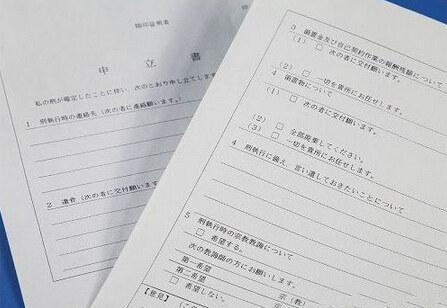 指印証明者
申立書
私の刑が確定したことに伴い、次のとおり申し立てします
1 刑執行時の連絡先（次の者に連絡願います。）
2 遺骨（次の者に交付願います。
3 領置金及び自己契約作業の報酬残額について
(1) □ 次の者に交付願います。
(2) □ 一切を貴所にお任せします。
4 領置物について
(1) □ 次の者に交付願います。
(2) □ 全部廃棄してください。
(3) □ 一切を貴所にお任せします。
4 刑執行に備え、言い遺しておきたいことについて
5 刑執行時の宗教教誨について
□ 希望する。
次の教誨師の方にお願いします。
第一希望 宗（教）
第二希望 宗
□ 希望しない。
【意見】